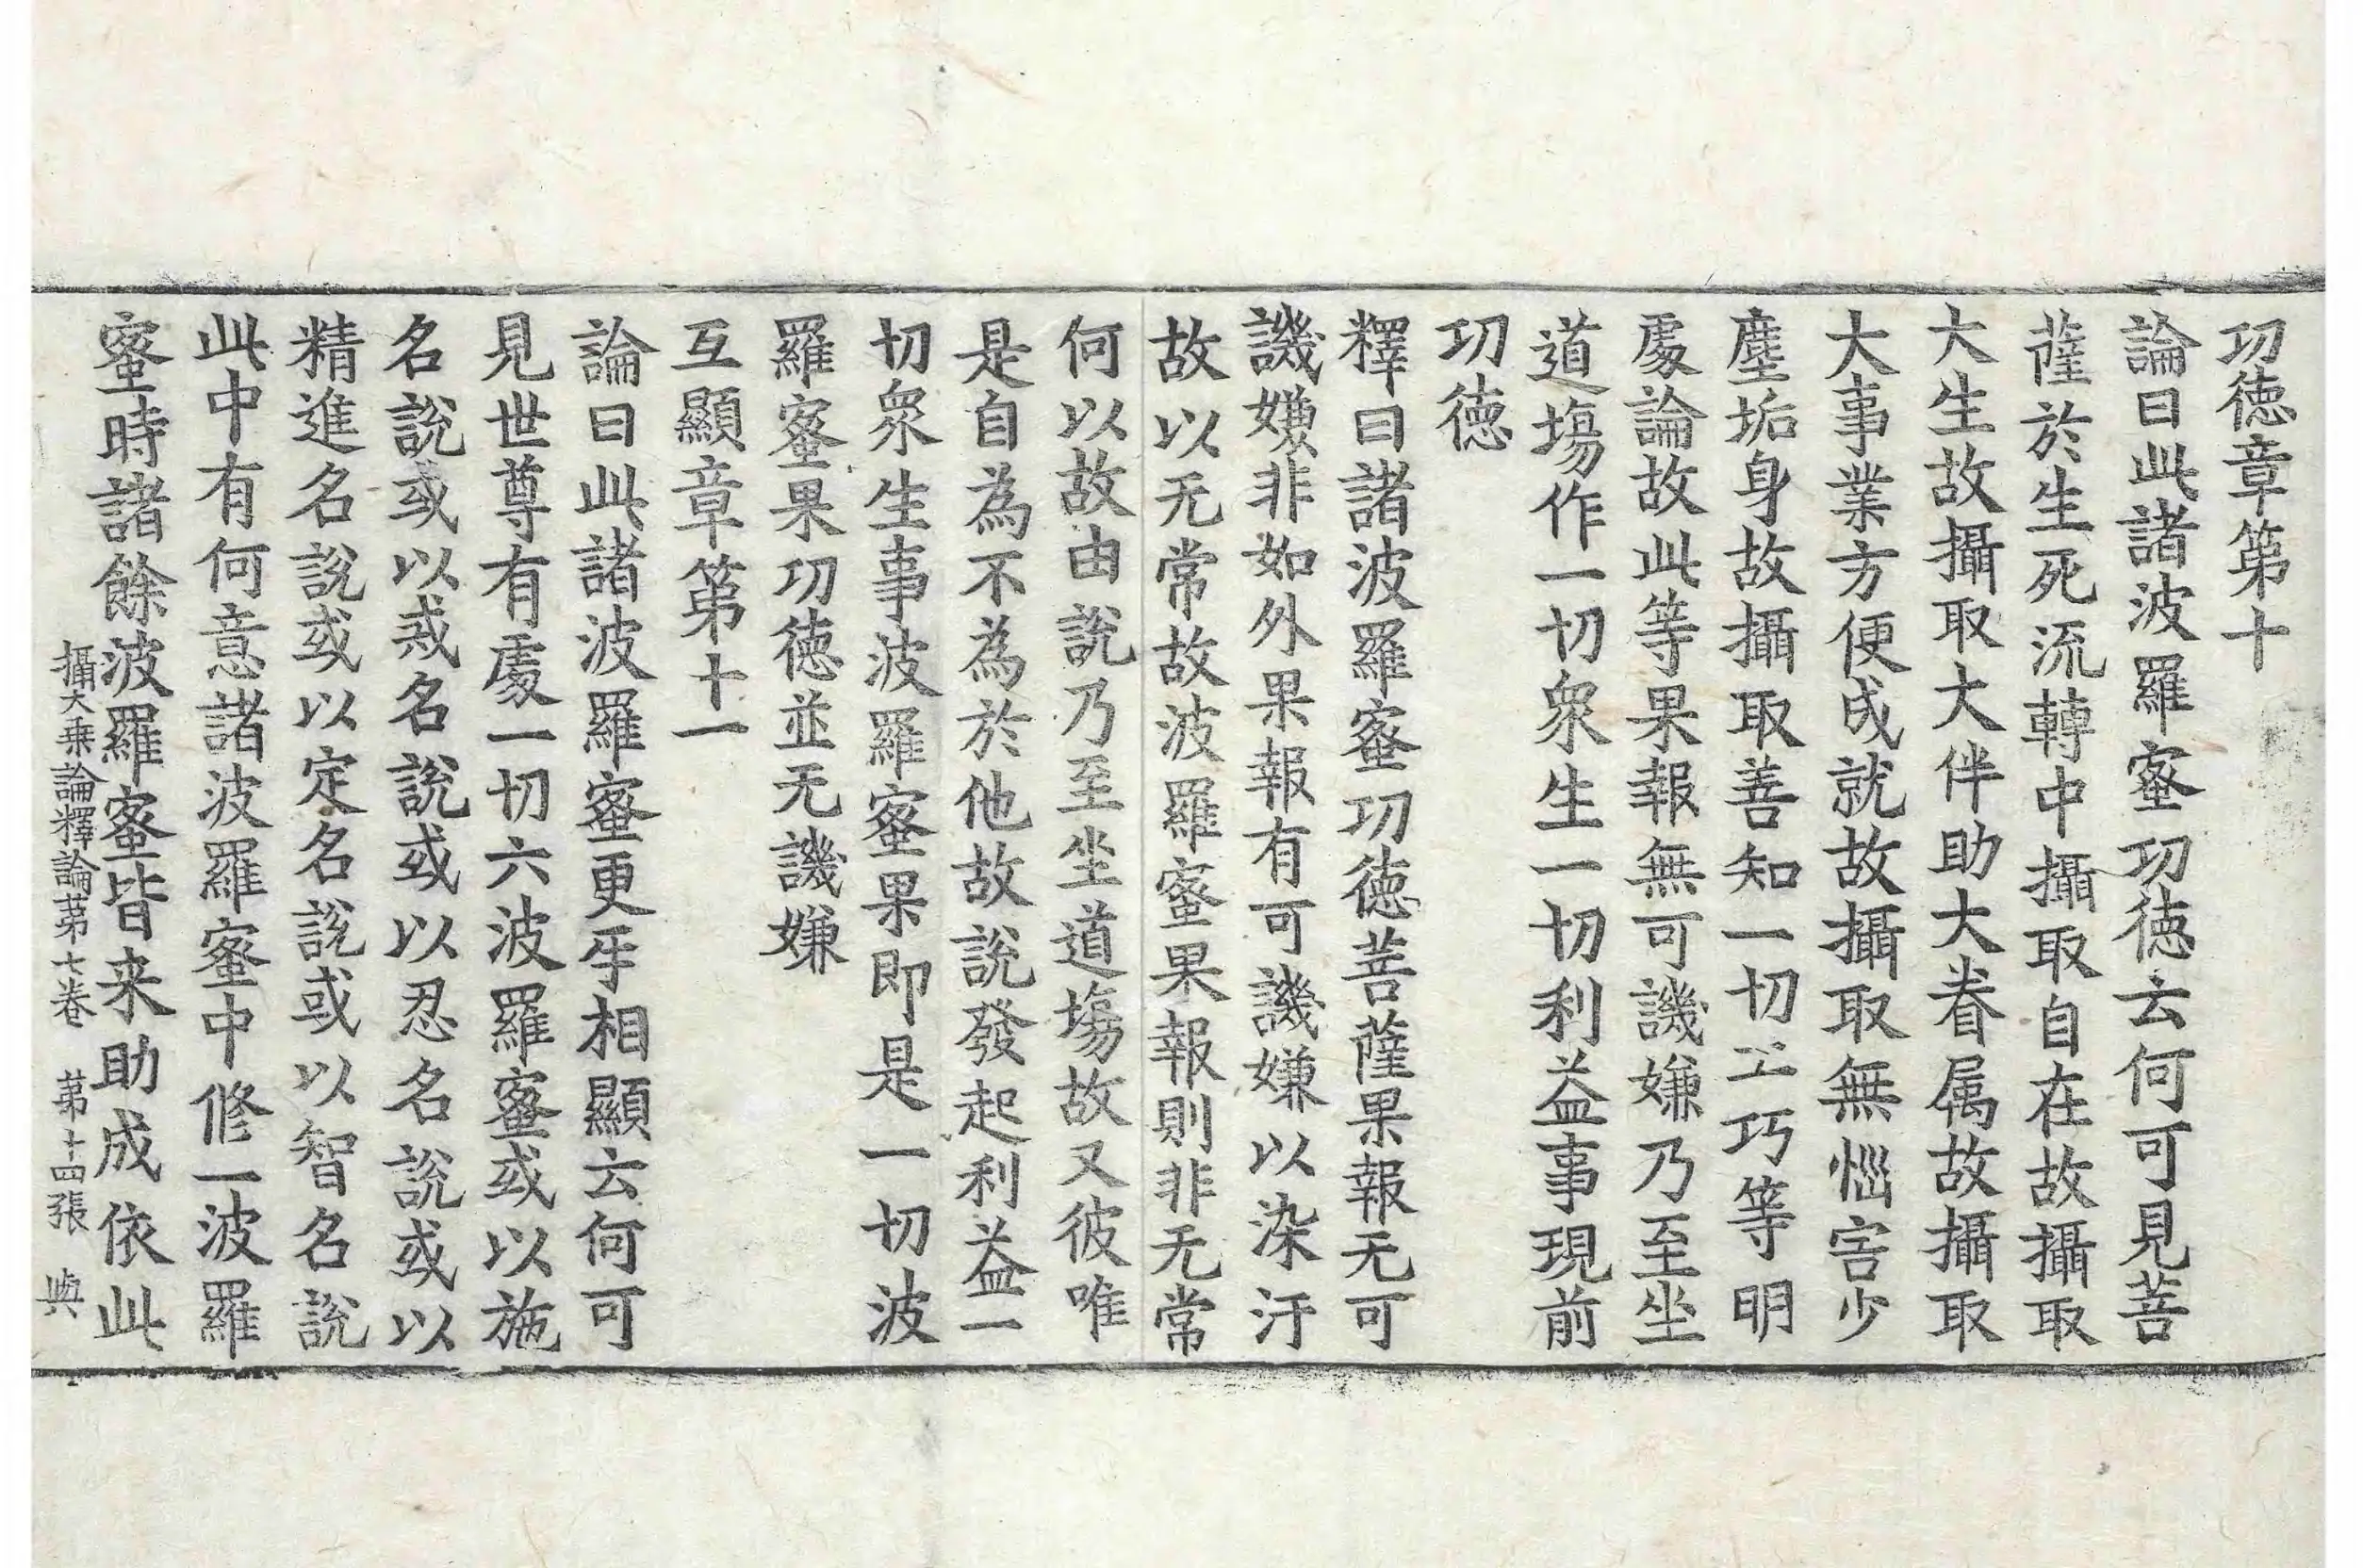 功徳章第十
論曰此諸波羅蜜功徳云何可見菩
薩於生死流轉中攝取自在故攝取
大生故攝取大伴助大眷属故攝取
大事業方便成就故攝取無惱害少
塵垢身故攝取善知一切工巧等明
處論故此等果報無可譏嫌乃至坐
道塲作一切衆生一切利益事現前
功徳
釋曰諸波羅蜜功徳菩薩果報无可
譏嫌非如外果報有可譏嫌以染汙
故以无常故波羅蜜果報則非无常
何以故由說乃至坐道塲故又彼唯
是自為不為於他故說發起利益一
切衆生事波羅蜜果即是一切波
羅蜜果功徳並无譏嫌
互顯章第十一
論曰此諸波羅蜜更㸦相顯云何可
見世尊有處一切六波羅蜜或以施
名說或以戒名說或以忍名說或以
精進名說或以定名說或以智名說
此中有何意諸波羅蜜中修一波羅
蜜時諸餘波羅蜜皆来助成依此
攝大乗論釋論苐七卷 苐十四張 與